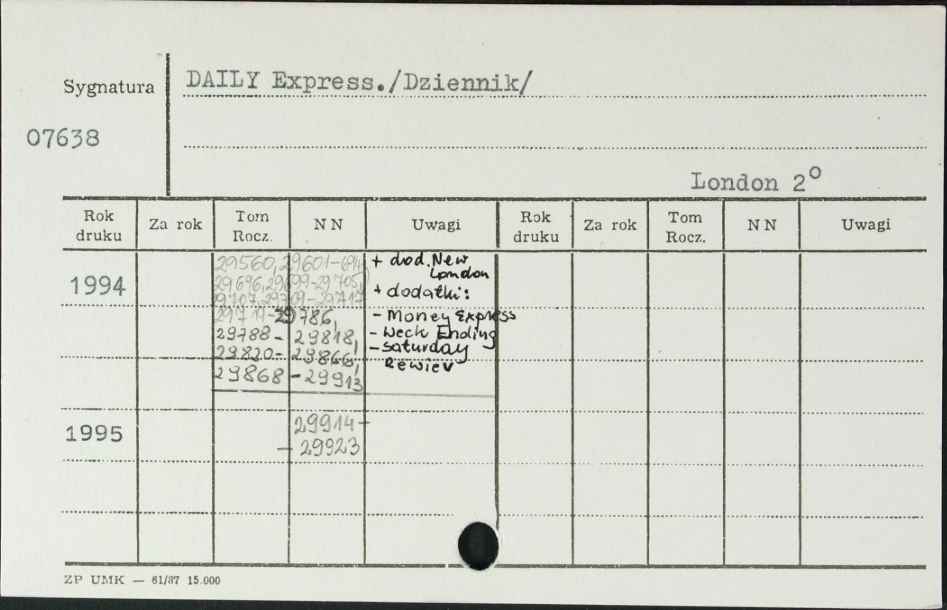 Sygnatura
DAILY Express./Dziennik/
07638
London 2°
Rok druku Za rok Tom Rocz. NN Uwagi Rok druku Za rok Tom Rocz. NN Uwagi
1994
29560, 29601-694,
29696, 29699-29705,
29707, 29709-29717
29719-29786,
29788- 29818,
29820- 29866,
29868-29913
+ dod. New
London
+ dodatki:
- Money Express
- Week Ending
- Saturday
Rewiev
1995
29914-
- 29923
ZP UMK — 61/87 15.000